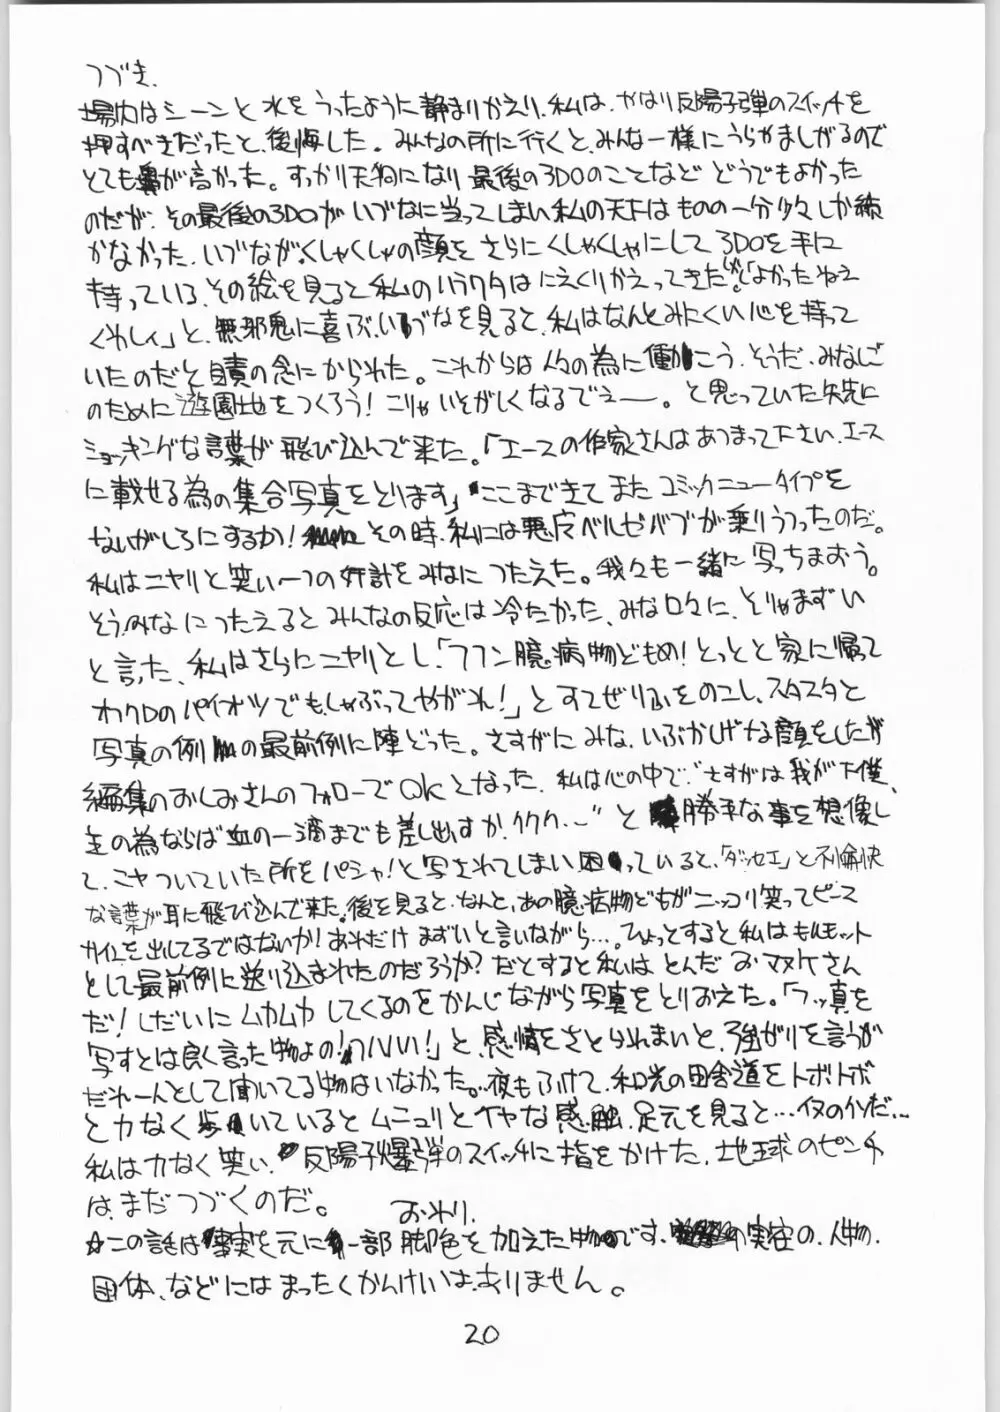 つづき.
場内はシーンと水をうったように静まりかえり、私は、やはり反陽子弾のスイッチを
押すべきだったと、後悔した。みんなの所に行くと、みんな一様にうらやましがるので
とても鼻が高かった。すっかり天狗になり最後の3DOのことなどどうでもよかった
のだが、その最後の3DOがいづなに当ってしまい私の天下はものの一分少々しか続
かなかった、いづながくしゃくしゃの顔をさらにくしゃくしゃにして3DOを手に
持っている、その絵を見ると私のハラワタはにえくりかえってきたが「よかったねぇ
くやしィ」と、無邪鬼に喜ぶ、いづなを見ると、私はなんとみにくい心を持って
いたのだと自責の念にかられた。これからは人々の為に働こう、そうだ、みなしご
のために遊園地をつくろう!こりゃいそがしくなるでェー。と思っていた矢先に
ショッキングな言葉が飛び込んで来た。「エースの作家さんはあつまって下さい、エース
に載せる為の集合写真をとります」ここまできてまたコミックニュータイプを
ないがしろにするか!その時、私には悪魔ベルゼバブが乗りうつったのだ。
私はニヤリと笑い一つの奸計をみなにつたえた。我々も一緒に写っちまおう。
そう、みなにつたえるとみんなの反応は冷たかった、みな口々に、そりゃまずい
と言った、私はさらにニヤリとし、「フフン臆病物どもめ!とっとと家に帰って
オフクロのパイオツでも、しゃぶってやがれ!」とすてぜりふをのこし、スタスタと
写真の例の最前例に陣どった。さすがにみな、いぶかしげな顔をしたが
編集のおしみさんのフォローでOKとなった、私は心の中で、“さすがは我が下僕、
主の為ならば血の一滴までも差し出すか、ククク…”と勝手な事を想像し
て、ニヤついていた所をパシャ!と写されてしまい困っていると、「ダッセエ」と不愉快
な言葉が耳に飛び込んで来た。後を見ると、なんと、あの臆病物どもがニッコリ笑ってピース
サインを出してるではないか!あれだけまずいと言いながら…。ひょっとすると私はモルモット
として最前例に送り込まれたのだろうか?だとすると私はとんだおマヌケさん
だ!しだいにムカムカしてくるのをかんじながら写真をとりおえた。「フッ真を
写すとは良く言った物よの!フハハ!」と、感情をさとられまいと、強がりを言うが
だれ一人として聞いてる物はいなかった。夜もふけて、和光の田舎道をトボトボ
と力なく歩いているとムニュリとイヤな感触、足元を見ると…イヌのフンだ…
私は力なく笑い、反陽子爆弾のスイッチに指をかけた、地球のピンチ
は、まだつづくのだ。
おわり.
☆この話は事実を元に一部脚色を加えた物です、実在の、人物、
団体、などにはまったくかんけいは、ありません。
20